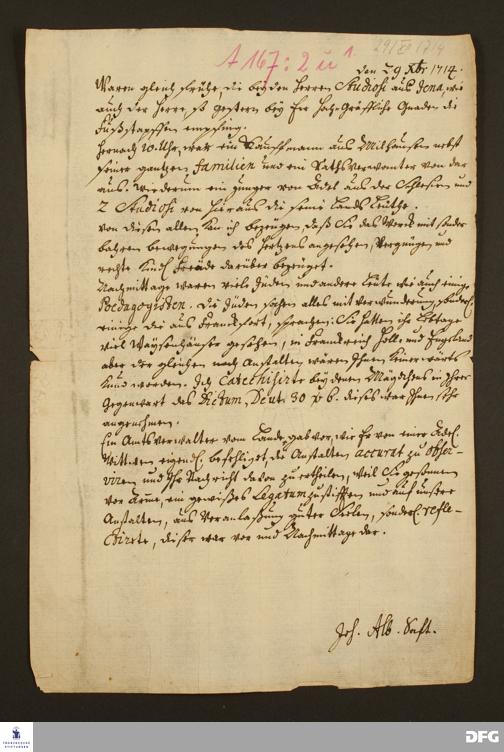 A 167: 2 u 1.
29/XI 1714
den 29 Xbr 1714.
Waren gleich frühe, die beyden Herren Studiosi aus Jena, wie
auch der Herr, so gestern bey Ihr Hoch-Gräffliche Gnaden die
Fußstapffen empfing.
Hernach 10. Uhr, war ein Kauffmann aus Milhausen nebst
seiner gantzen familien und ein Rathsverwanter von dar
aus. Wiederum ein junger von Adel aus der Schlesien und
2 Studiosi von hier aus die seine Lands Leuthe.
von diesen allen kan ich bezeugen, daß Sie das Werck mit sonder
bahren bewegungen des Hertzens angesehen, Vergnügen und
rechte Kindl. Freüde darüber bezeuget.
Nachmittage waren viele Jüden und andere Leute wie auch einige
Poedagogisten. Die Jüden sahen alles mit verwunderung
einige die aus Franckfort, sprachen: Sie hätten ihr Lebtage
viel Waysenhäuser gesehen, in Franckreich Holl- und Engeland
aber der gleichen nach Anstalten wären Ihnen keiner warts
kund worden. Ich Catechisirte bey denen Mägdchens in Ihrer
Gegenwart das Dictum, Deut: 30 v 6. dieses war Ihnen sehr
angenehmen.
Ein Amtsverwalter vom Lande, gab vor, wie Er von einer Adel.
Wittwen eigendl. befehliget, die Anstalten accurat zu obser-
viren und Ihr Nachricht davon zu ertheilen, weil Sie gesonnen
vor Arme, ein gewißes Legatum zu stifften und auf unsere
Anstalten, aus Veranlaßung guter Seelen, sonderl. refle-
ctirete, dieser war vor und Nachmittage dar.
Joh. Alb. Saft.
FRANCKESCHE
STIFTUNGEN
DFG